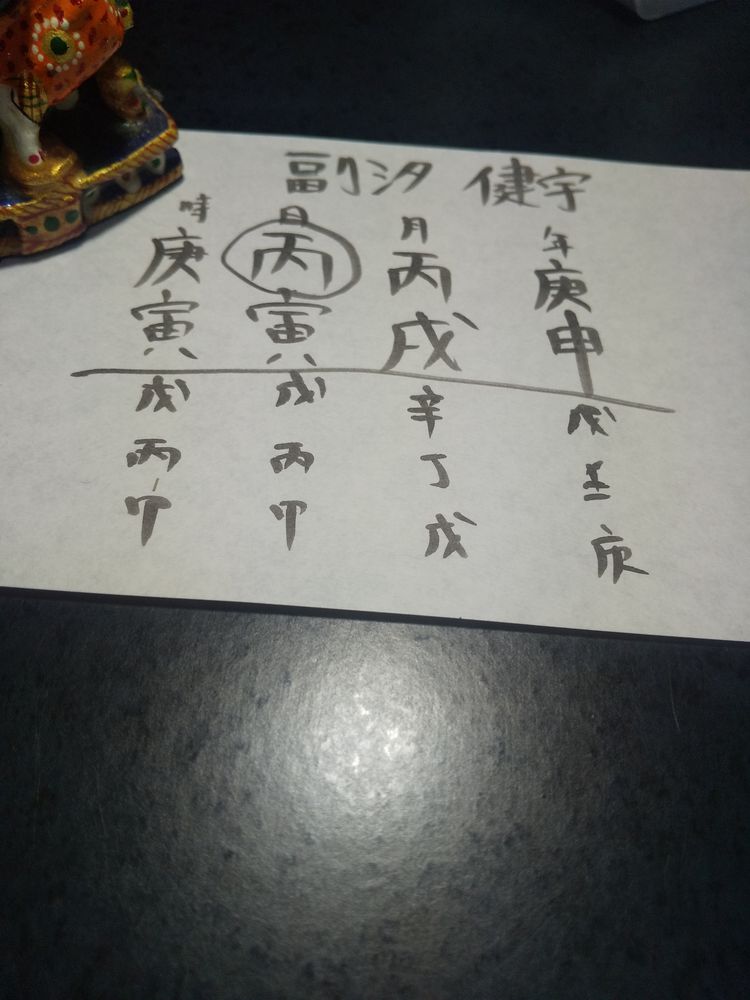 副汐 健宇
時 日 月 年
庚 丙 丙 庚
寅 寅 戌 申
戊 戊 辛 戊
丙 丙 丁 壬
甲 甲 戊 庚